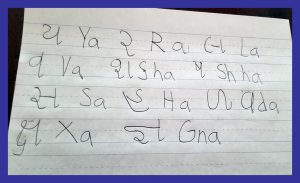 ય Ya ર Ra લ La
વ Va શ Sha ષ Shha
સ Sa હ Ha ળ ada
ક્ષ Xa જ્ઞ Gna